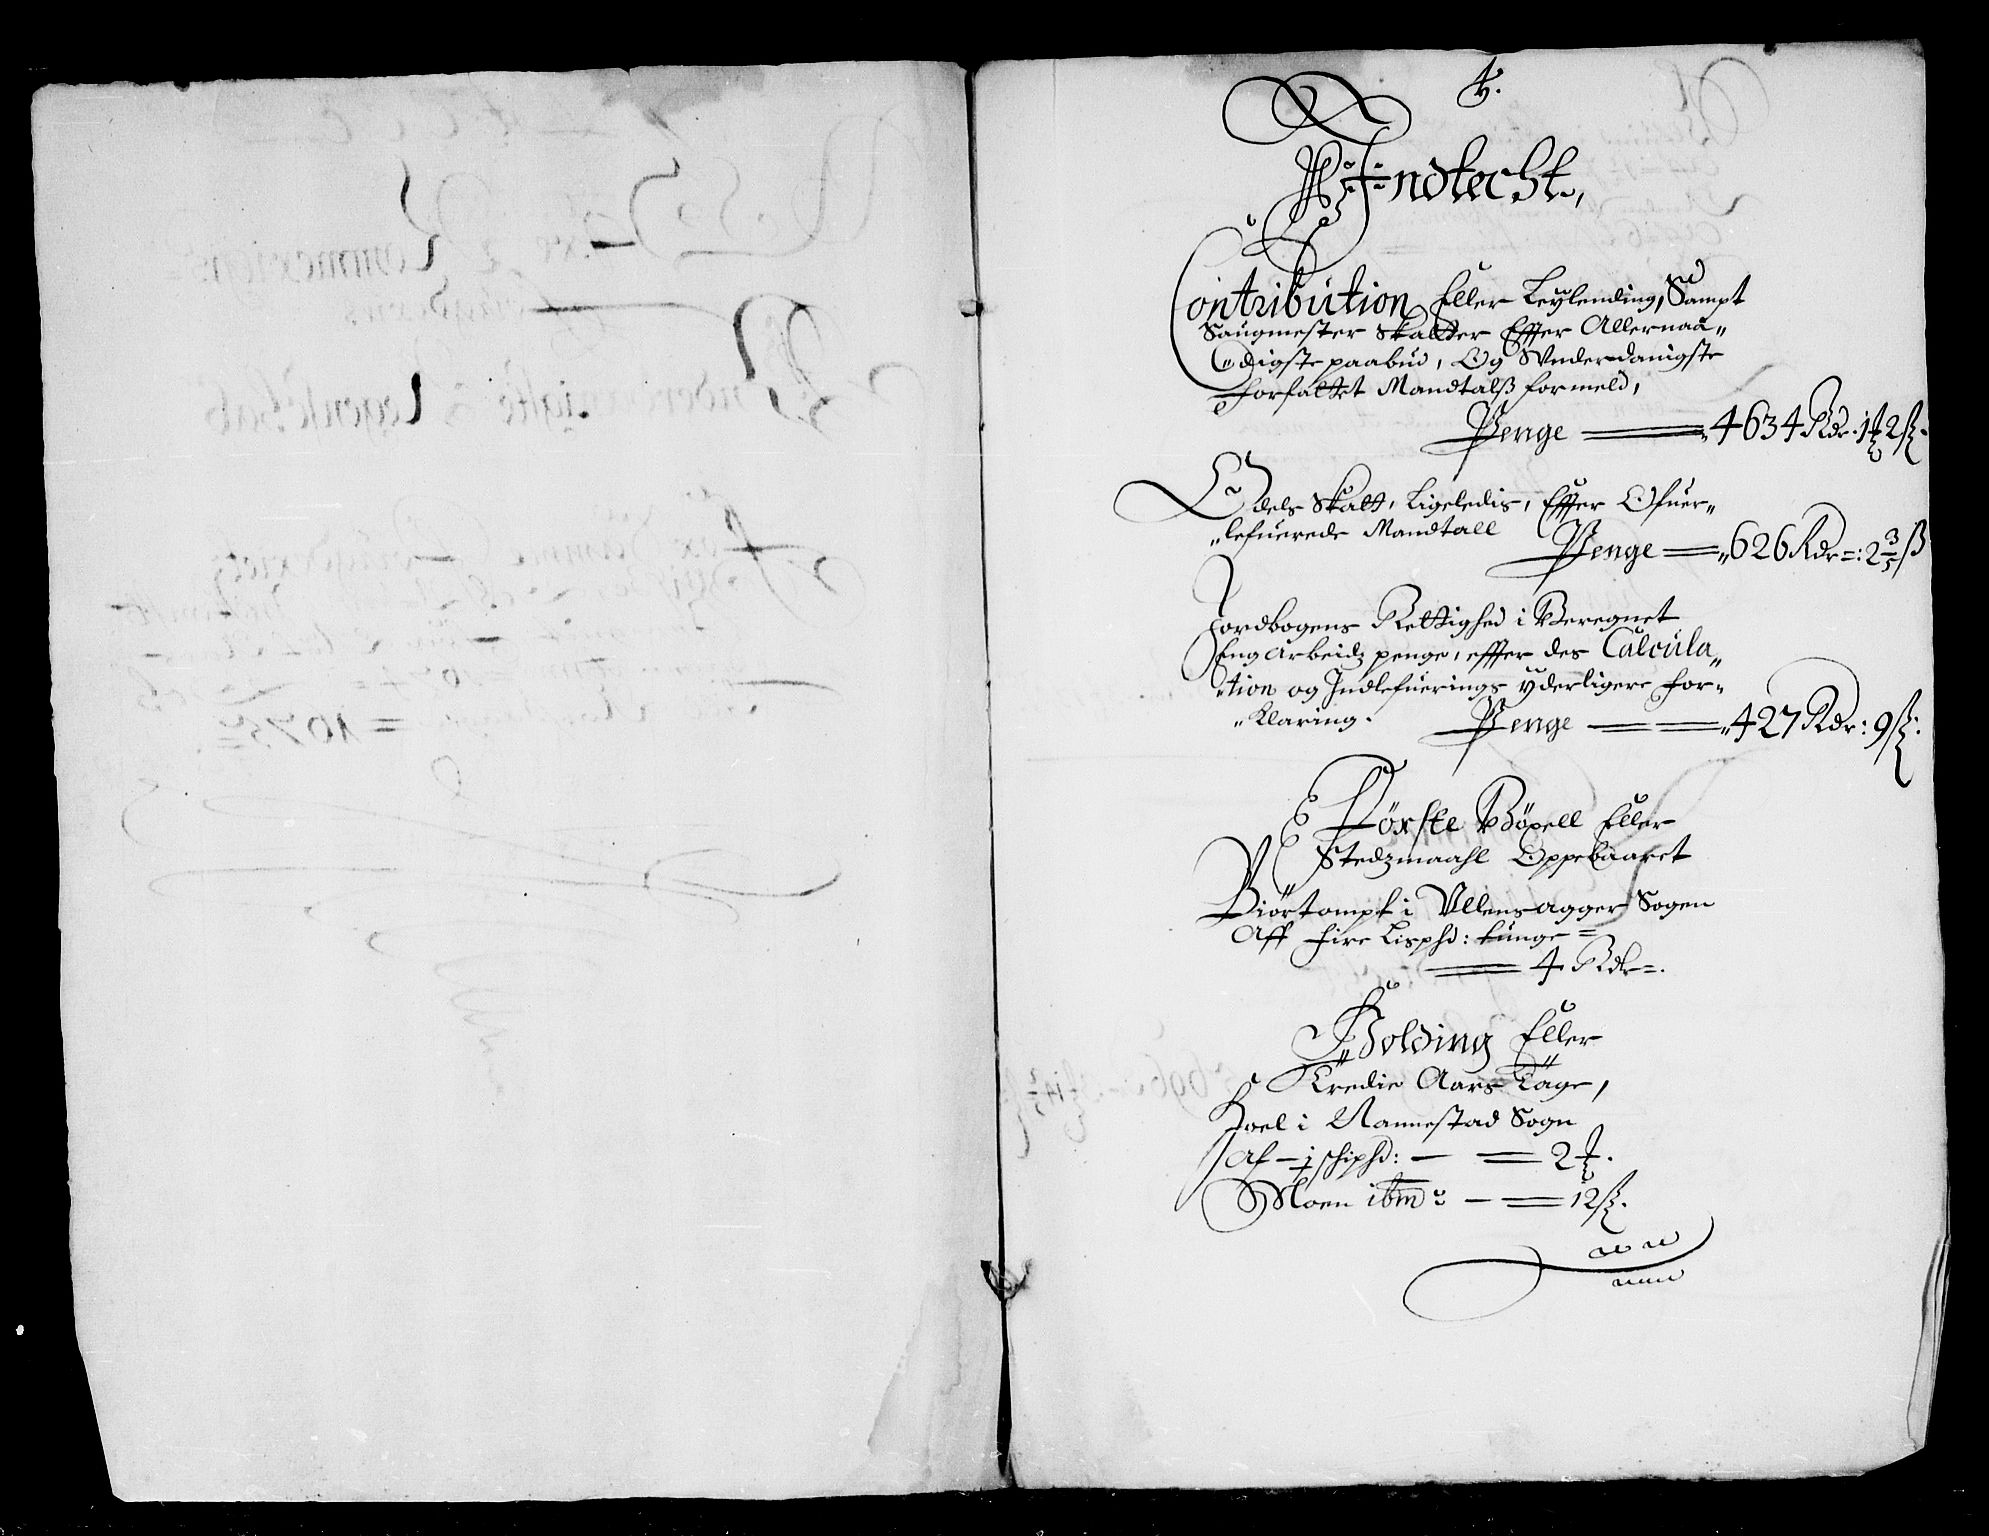 Indtecht,
Contribution Eller Leylending, Sampt
Saugmester Skatter Effter Allernaa„
„digste paabud, Og Vnderdanigste
forfattet Mandtalß formeld,
Penge — 4634 Rdr. 1 ƺ 2 ß.
Odels Skatt, Ligeledis, Effter Ofuer„
„lefuerede Mandtall
Penge — „626 Rdr: 2 3/5 ß
Jordbogens Rettighed i Beregnet
Eng Arbeidz penge, effter des Calcula„
„tion og Indlefuerings yderligere for„
„Klaring.
Penge — „427 Rdr: 9 ß.
Förste Böxell Eller
Stedzmaahl Oppebaaret
Biörtompt i Ullensagger Sogen
Aff fire Lisphd: tunge
— 4 Rdr.
Holding Eller
Tredie Aars Tage,
Hoel i Nannestad Sogn
Af — j schiphd: — 2 ƺ.
Moen ibm: — 12 ß.